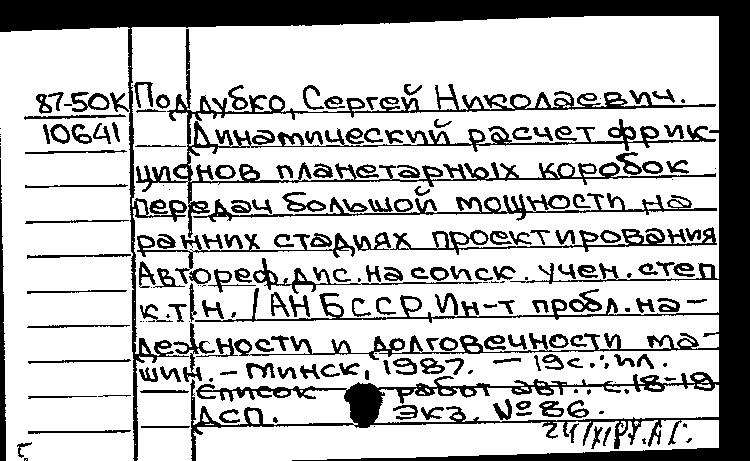 87-50К Поддубко, Сергей Николаевич.
10641 Динамический расчет фрик-
ционов планетарных коробок
передач большой мощности на
ранних стадиях проектирования
Автореф. дис. на соиск. учен. степ
к.т.н. / АН БССР, Ин-т пробл. на-
дежности и долговечности ма-
шин. - Минск, 1987. - 19с.: ил.
Список работ авт.: с.18-19
ДСП. Экз. № 86.